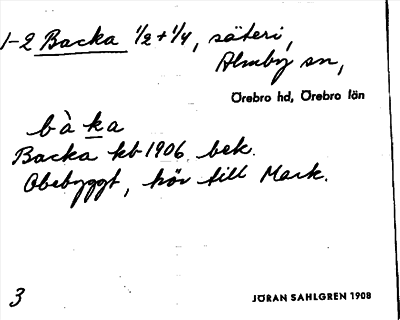 1-2 Backa 1/2+1/4, säteri,
Almby sn,
Örebro hd, Örebro län
bà ka
Backa kb 1906. bek.
Obebyggt, hör till Mark.
3
JÖRAN SAHLGREN 1908